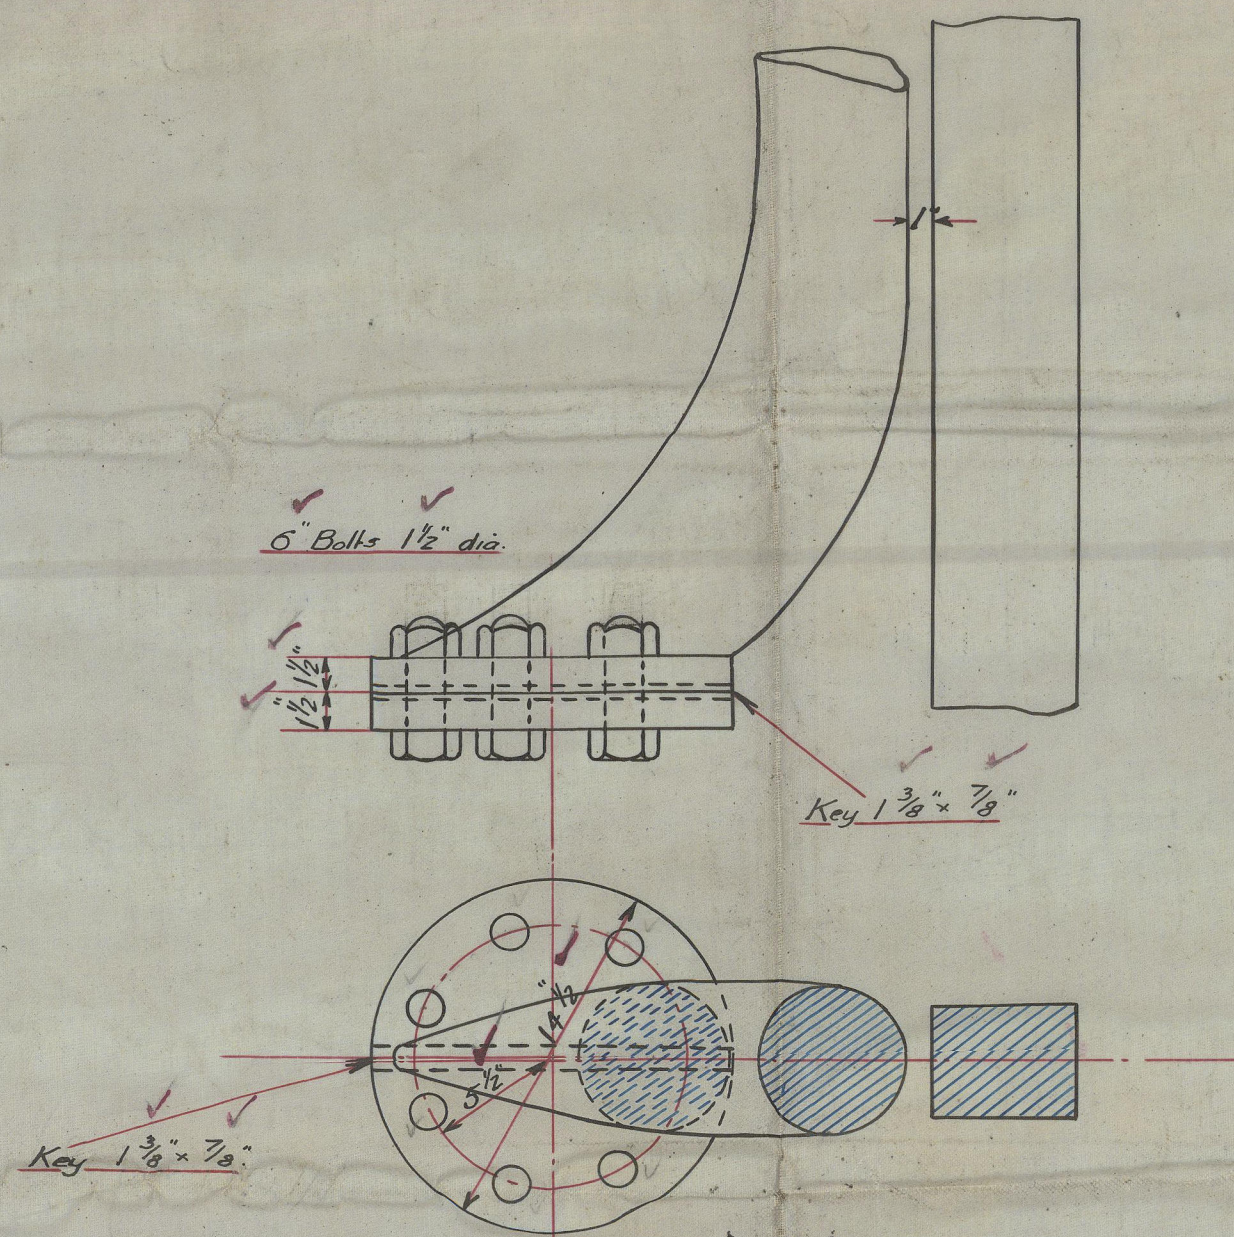 1"
6" Bolts 1 1/2" dia.
1 1/2"
1 1/2"
Key 1 3/8" x 7/8"
14 1/2"
5 1/2"
Key 1 3/8" x 7/8"